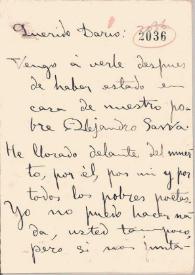 2036
Querido Darío:
2036
Vengo á verle despues
de haber estado en
casa de nuestro po-
bre Alejandro Sawa.
He llorado delante del muer-
to, por él, por mí y por
todos los pobres poetas.
Yo no puedo hacer na-
da, usted tampoco,
pero si nos junta-